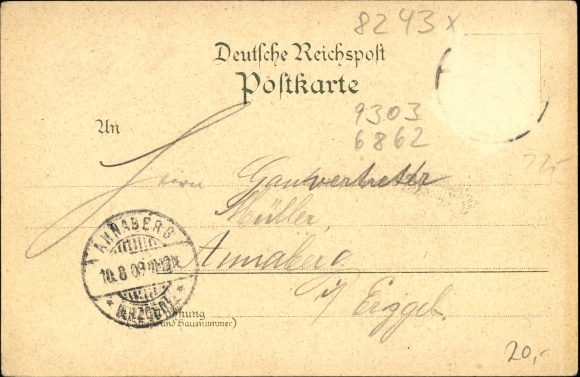 8243 x
Deutsche Reichspost
Postkarte
9303
6862
An
Herrn Gauvertreter
Müller,
Annaberg
i/ Erzgeb.
ANNABERG
10.8.09
* ERZGEB. *
nung
und Hausnummer)
20,-